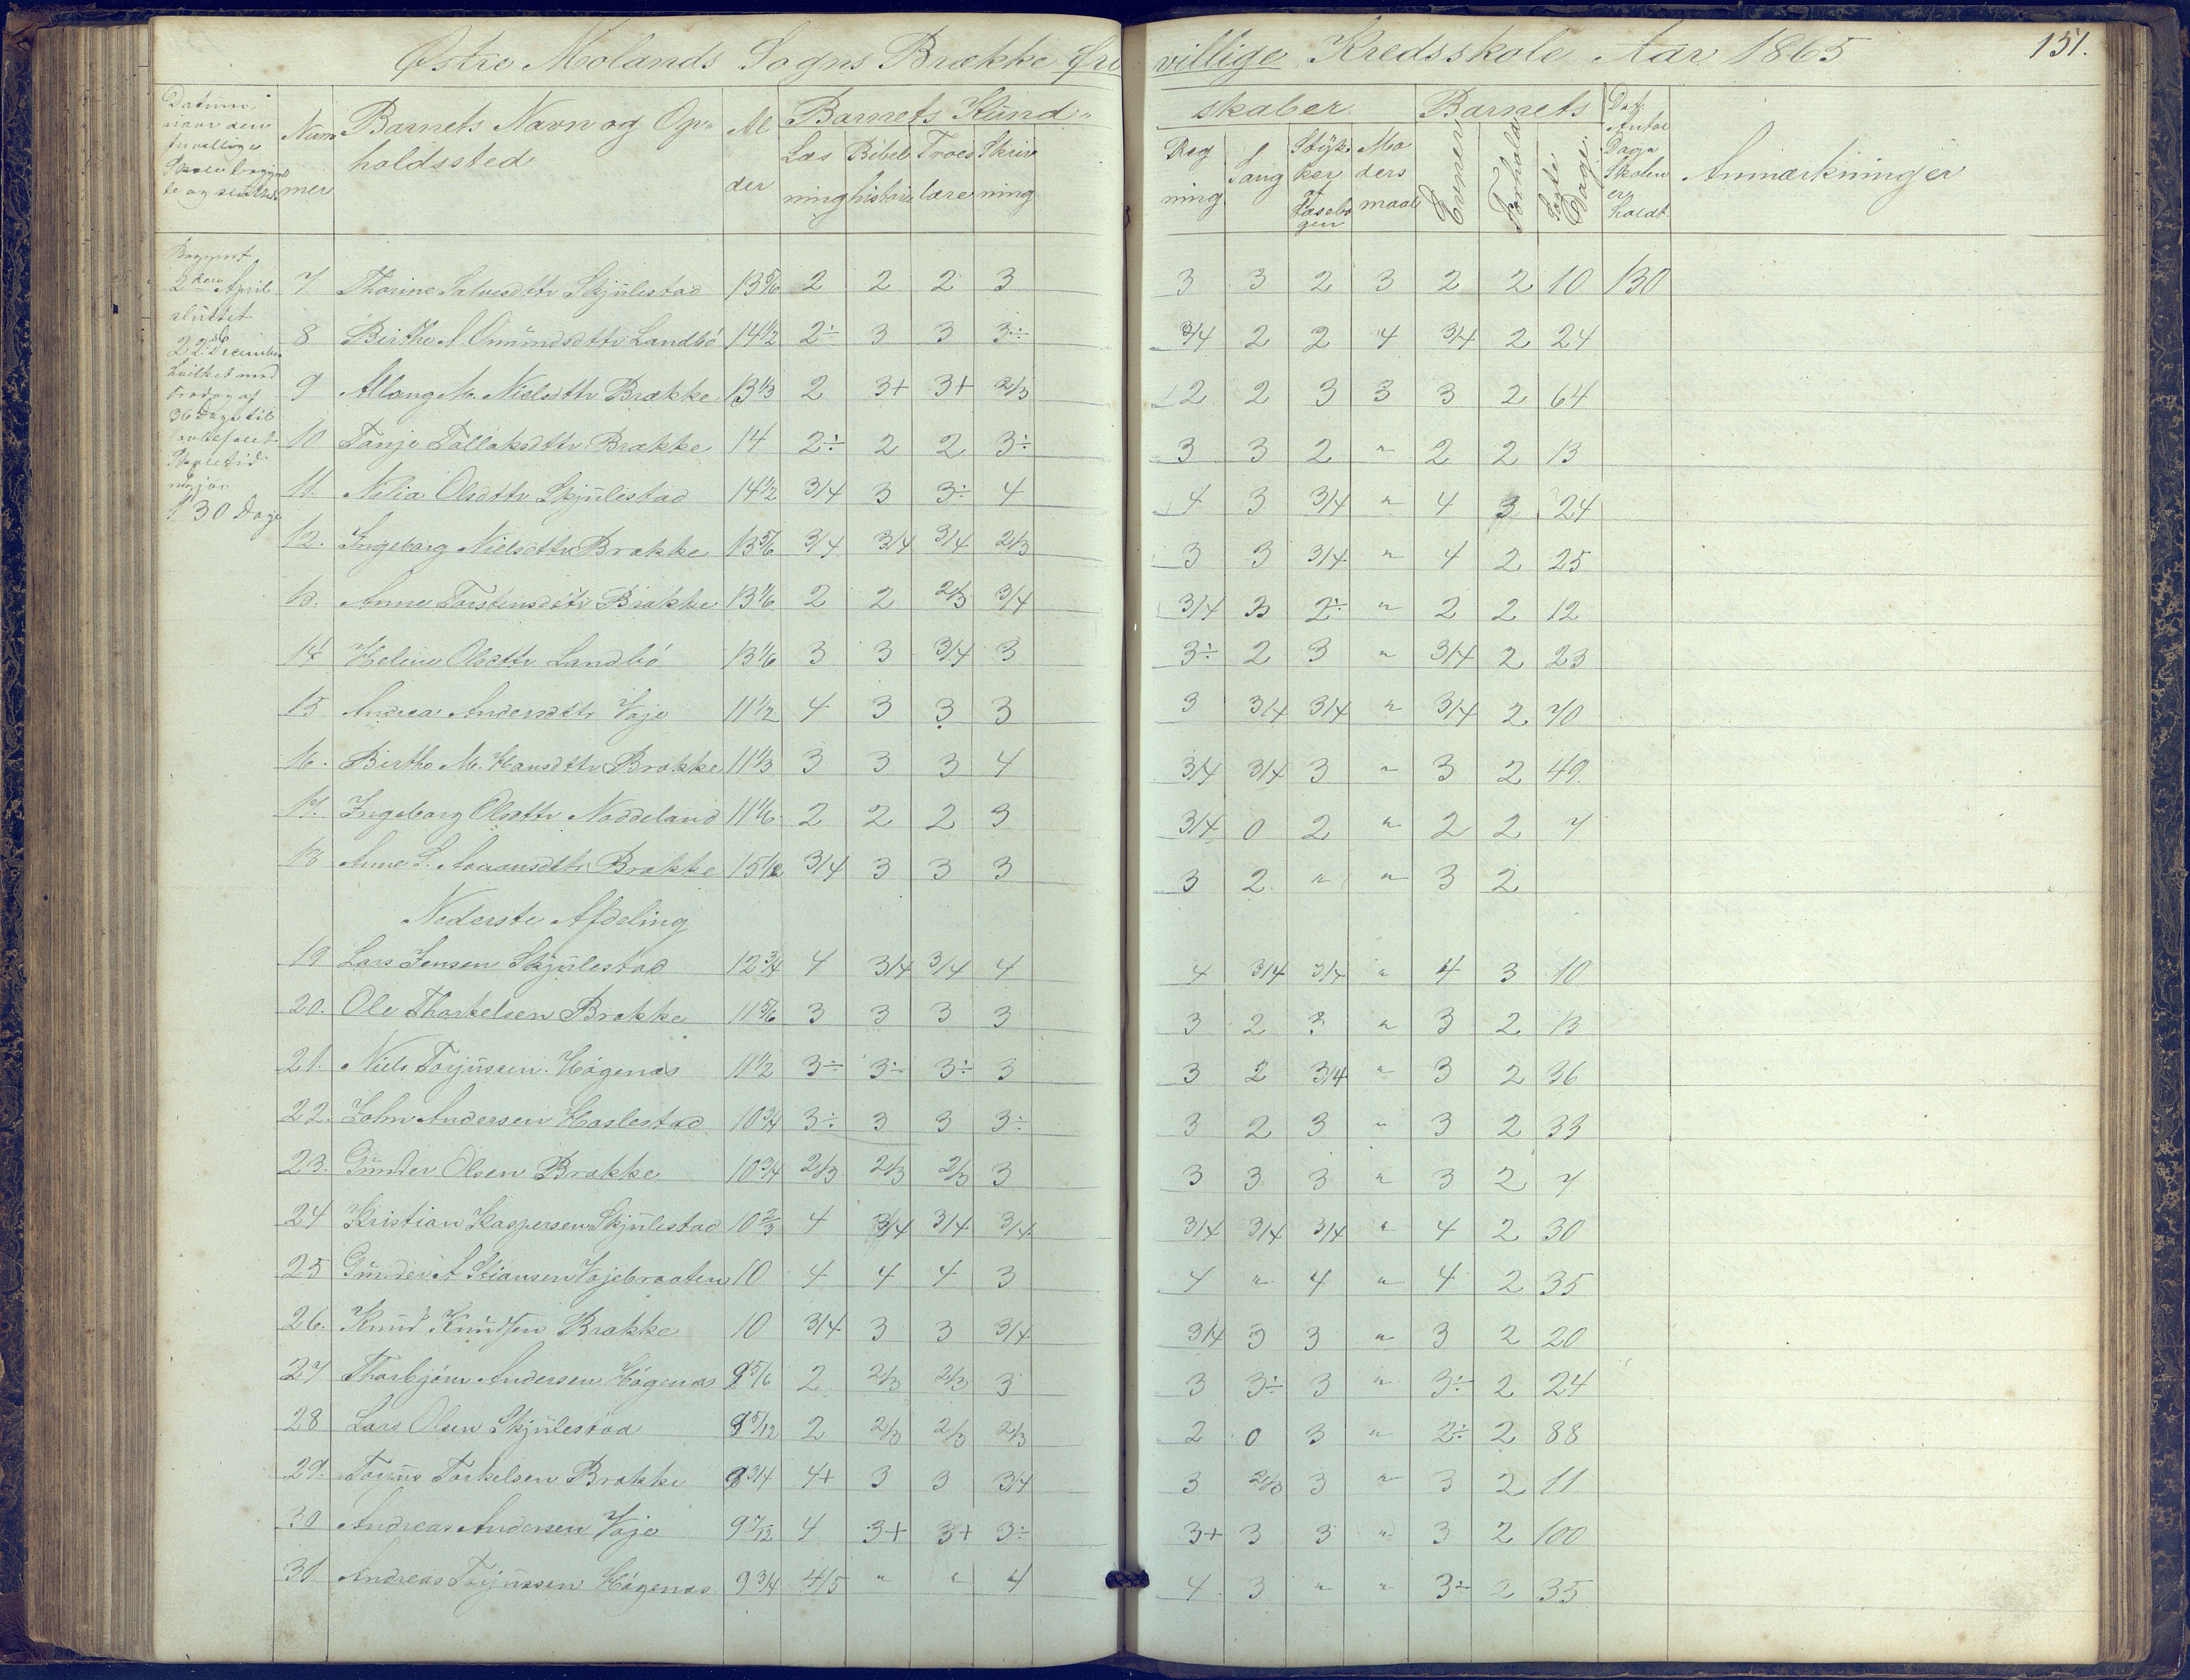 Østre Molands Sogns Brække fri villige Kredsskole Aar 1865 151.
Datum, naar den frivillige Skole begyndte og sluttede
Num mer
Barnets Navn og Op- holdssted
Al der
Barnets Kund- skaber
Læs ning
Bibel historie
Troes lære
Skriv ning
Reg ning
Sang
Stÿk ker af Læsebo gen
Mo ders maal
Barnets
Evner
Forhold
Dage
Dat. Antal Dage Skolen er holdt.
Anmærkninger
Begyndt 3die April sluttet 22de December hvilket med Fradrag af 36 Dage til Skoletid udgjør 130 Dage
7 Thorine Salvesdttr Skjulestad 13 5/6 2 2 2 3 3 3 2 3 2 2 10 130
8 Birthe A. Omundsdttr Landbö 14 1/2 2÷ 3 3 3÷ 3/4 2 2 4 3/4 2 24
9 Aslaug M. Nielsdttr Brække 13 1/3 2 3+ 3+ 2/3 2 2 3 3 3 2 64
10 Tanje Tallaksdttr Brække 14 2÷ 2 2 3÷ 3 3 2 " 2 2 13
11. Nilia Olsdttr Skjulestad 14 1/2 3/4 3 3÷ 4 4 3 3/4 " 4 3 24
12. Ingeborg Nielsdttr Brække 13 5/6 3/4 3/4 3/4 2/3 3 3 3/4 " 4 2 25
13. Anne Torstensdttr Brække 13 1/6 2 2 2/3 3/4 3/4 3 2÷ " 2 2 12
14 Helene Olsdttr Landbö 13 1/6 3 3 3/4 3 3÷ 2 3 " 3/4 2 23
15 Andrea Andersdttr Voje 11 1/2 4 3 3 3 3 3/4 3/4 " 3/4 2 70
16. Birthe M. Hansdttr Brække 11 1/3 3 3 3 4 3/4 3/4 3 " 3 2 49.
17. Ingeborg Olsdttr Noddeland 11 1/6 2 2 2 3 3/4 0 2 " 2 2 7
18 Anne S. Aanonsdttr Brække 3/4 3 3 3 3 2. " " 3 2
Nederste Afdeling
19 Lars Jensen Skjulestad 12 3/4 4 3/4 3/4 4 4 3/4 3/4 " 4 3 10
20. Ole Thorkelsen Brække 11 5/6 3 3 3 3 3 2 3 " 3 2 13
21. Niels Torjussen Högenæs 11 1/2 3÷ 3÷ 3÷ 3 3 2 3/4 " 3 2 36
22. John Andersen Haslestad 10 3/4 3÷ 3 3 3÷ 3 2 3 " 3 2 33
23. Gunder Olsen Brække 10 3/4 2/3 2/3 2/3 3 3 3 3 " 3 2 7
24 Kristian Kaspersen Skjulestad 10 2/3 4 3/4 3/4 3/4 3/4 3/4 3/4 " 4 2 30
25 Gunder A Stiansen Vojebraaten 10 4 4 4 3 4 " 4 " 4 2 35
26. Knud Knudsen Brække 10 3/4 3 3 3/4 3/4 3 3 " 3 2 20
27 Thorbjörn Andersen Högenæs 9 5/6 2 2/3 2/3 3 3 3÷ 3 " 3÷ 2 24
28 Lars Olsen Skjulestad 9 5/12 2 2/3 2/3 2/3 2 0 3 " 2÷ 2 88
29. Torjus Torkelsen Brække 9 3/4 4+ 3 3 3/4 3 2/3 3 " 3 2 11
30 Andreas Andersen Voje 9 7/12 4 3+ 3+ 3÷ 3+ 3 3 " 3 2 100
31 Andreas Torjussen Högenæs 9 3/4 4/5 " " 4 4 3 " " 3÷ 2 35